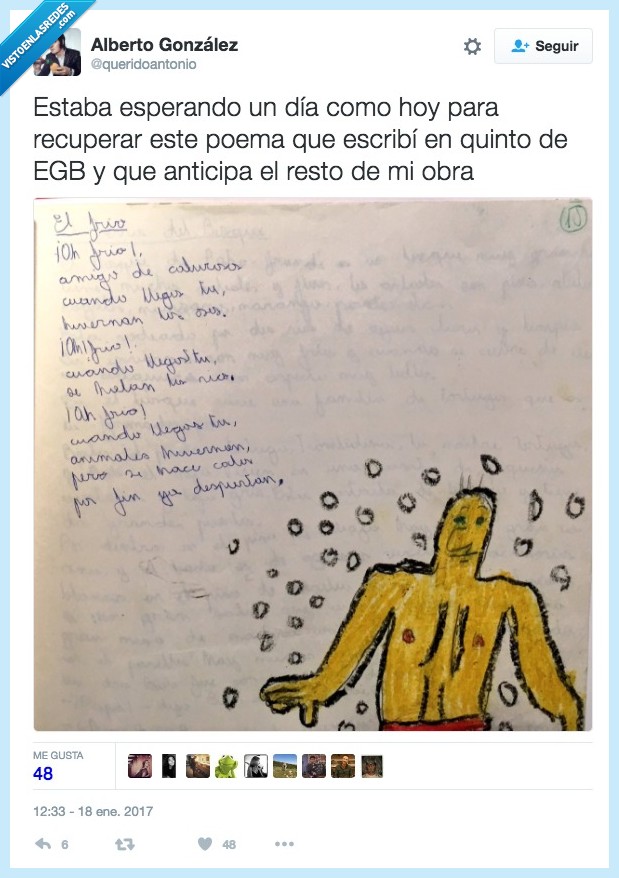 VISTOENLASREDES
.com
Alberto González
@queridoantonio
Seguir
Estaba esperando un día como hoy para
recuperar este poema que escribí en quinto de
EGB y que anticipa el resto de mi obra
El frío
10
¡Oh frío!,
amigo de calurosos
cuando llegas tu,
hivernan los osos.
¡Oh frío!
cuando llegas tu,
se hielan los
¡Oh frío!
cuando llegas tu,
animales hivernan,
pero se hace calor
por fin ya despiertan.
ME GUSTA
48
12:33 - 18 ene. 2017
6
48